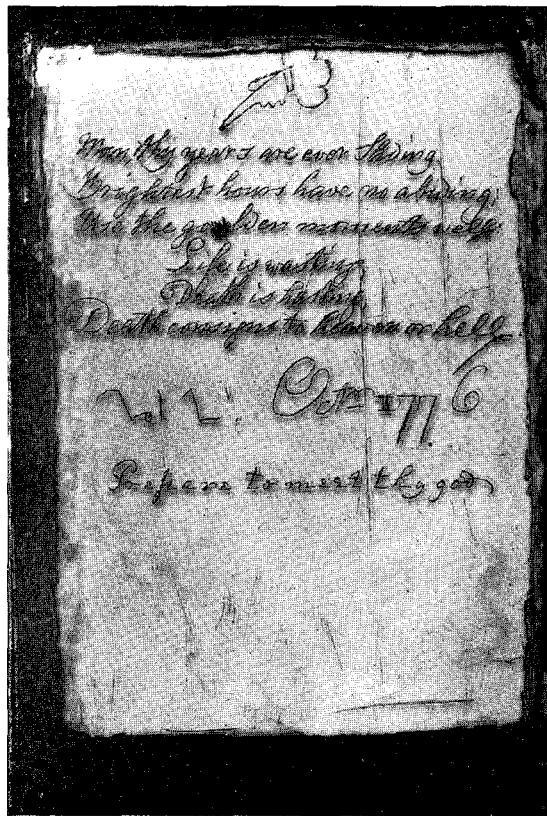 Man thy years are ever Sliding
Brightest hours have no abiding;
Use the goulden moments well
Life is wasting,
Death is hasting,
Death consigns to heaven or hell
Octbr 1776
Prepare to meet thy god